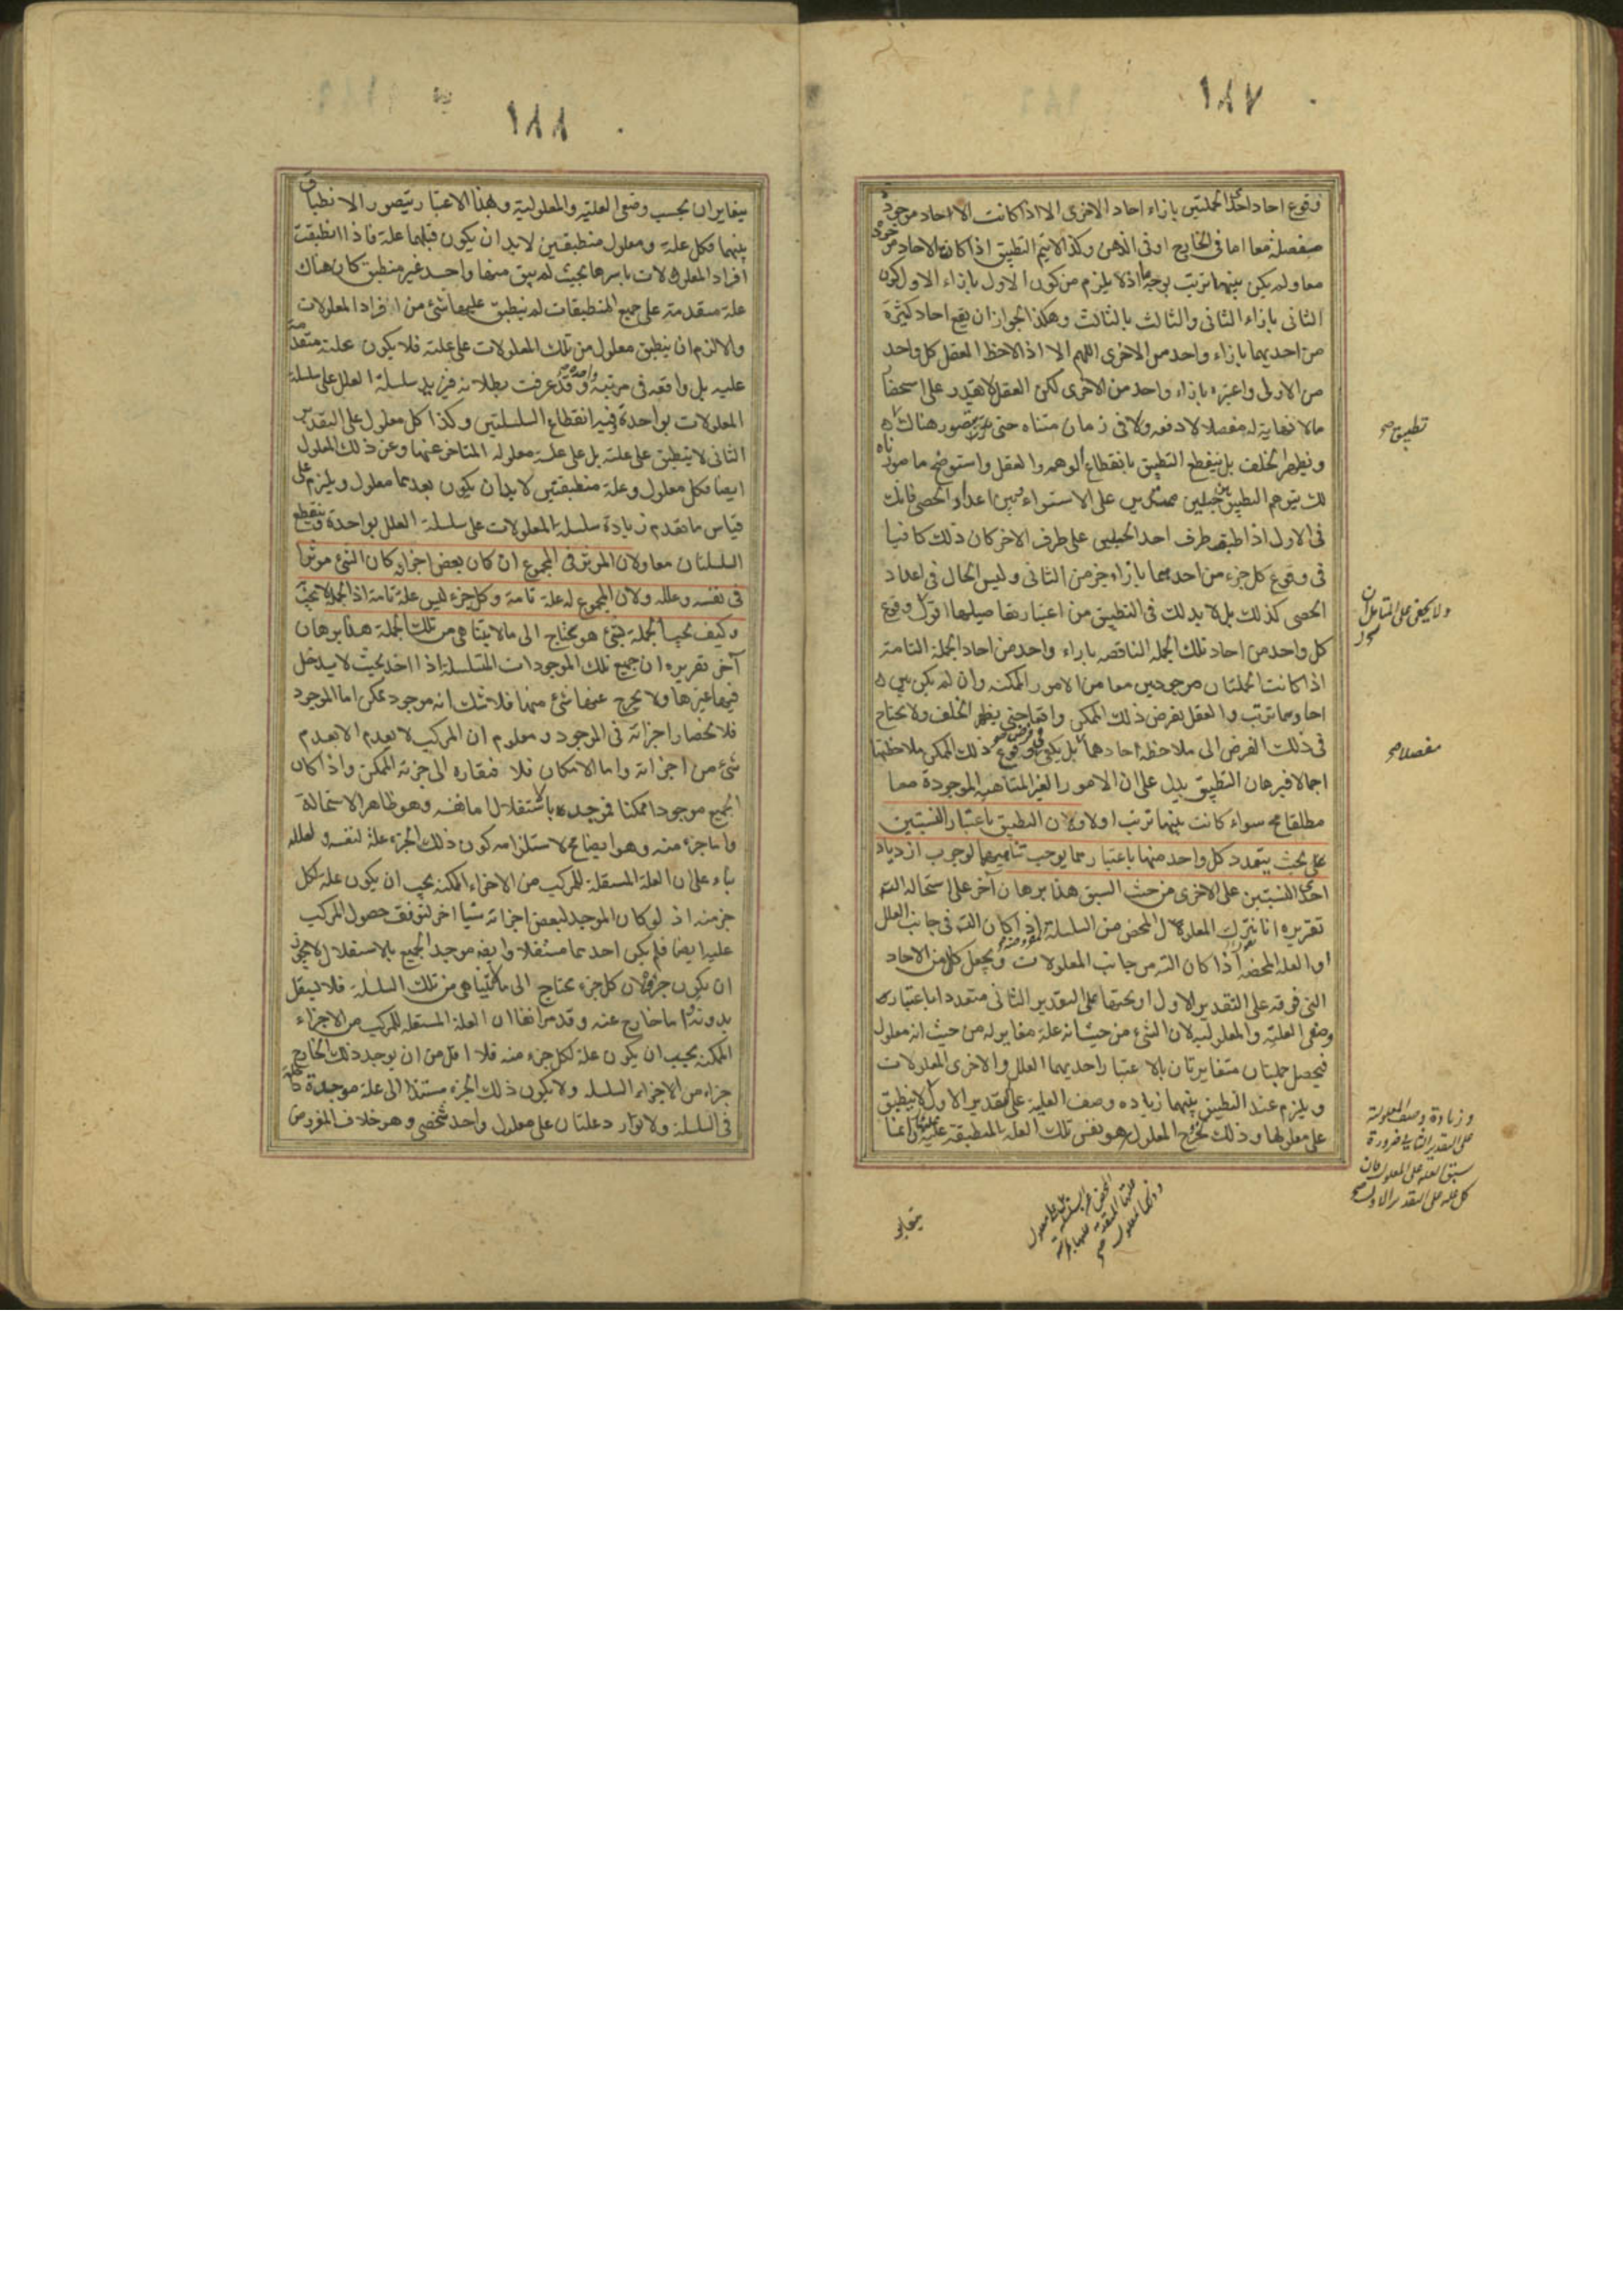 ١٨٧
وقوع احاد احدى الجملتين بازاء احاد الاخرى الا اذا كانت الاحاد موجودة
منفصلة معا اما فى الخارج او فى الذهن وكذا لا يتم التطبيق اذا كانت الاحاد موجودة
معا ولم يكن بينهما ترتب بوجه ما اذ لا يلزم من كون الاول بازاء الاول كون
الثانى بازاء الثانى والثالث بالثالث وهكذا لجواز ان يقع احاد كثيرة
من احديهما بازاء واحد من الاخرى اللهم الا اذا لاحظ العقل كل واحد
من الاولى واعتبره بازاء واحد من الاخرى لكن العقل لا يقدر على استحضار
مالا نهاية له مفصلا لا دفعه ولا فى زمان متناه حتى يتصور هناك
ويظهر الخلف بل ينقطع التطبيق بانقطاع الوهم والعقل واستوضح ما صورناه
لك بتوهم التطبيق بين جبلين ممتدين على الاستواء وبين اعداد الحصى فانك
فى الاول اذا طبقت طرف احد الجبلين على طرف الاخر كان ذلك كافيا
فى وقوع كل جزء من احدهما بازاء جزء من الثانى وليس الحال فى اعداد
الحصى كذلك بل لا بد لك فى التطبيق من اعتبار تفاصيلها اقول وقوع
كل واحد من احاد تلك الجملة الناقصه بازاء واحد من احاد الجملة التامة
اذا كانت الجملتان موجودتين معا من الامور الممكنة وان لم يكن بين
احادهما ترتب والعقل يفرض ذلك الممكن واقعا حتى يظهر الخلف ولا يحتاج
فى ذلك الفرض الى ملاحظة احادهما بل يكفى فى فرض وقوع ذلك الممكن ملاحظتها
اجمالا فبرهان التطبيق يدل على ان الامور الغير المتناهية الموجودة معا
مطلقا مح سواء كانت بينها ترتب اولا ولان التطبيق باعتبار النسبتين
على بحث يتعدد كل واحد منها باعتبارهما يوجب تناهيهما لوجوب ازدياد
احدى النسبتين على الاخرى من حيث السبق هذا برهان آخر على استحالة التس
تقريره انا نترك المعلول المحض من السلسلة المفروضة اذا كان التس فى جانب العلل
او العلة المحضه اذا كان التس من جانب المعلولات ونجعل كلا من الاحاد
التى فوقه على التقدير الاول او تحتها على التقدير الثانى متعددا باعتبار
وصفى العلية والمعلولية لان الشئ من حيث انه علة مغاير له من حيث انه معلول
فيحصل جملتان متغايرتان بالاعتبار احديهما العلل والاخرى المعلولات
ويلزم عند التطبيق بينهما زياده وصف العلية على التقدير الاول لا ينطبق
على معلولها وذلك لخروج المعلول هو نفس تلك العلة المنطبقة عليه وانما
تطبيق صح
ولا يخفى على المتامل ان
مفصلا صح
وزيادة وصف المعلولية
على التقدير الثانى ضرورة
سبق العلة على المعلول فان
كل علة على التقدير الاول صح
١٨٨
يتغايران بحسب وصفى العلية والمعلولية وهذا الاعتبار يتصور الانطباق
بينهما فكل علة ومعلول منطبقين لا بد ان يكون قبلهما علة فاذا انطبقت
افراد المعلولات باسرها بحيث لم يبق منها واحد غير منطبق كان هناك
علة متقدمة على جميع المنطبقات لم ينطبق عليها شئ من افراد المعلولات
والا لزم ان ينطبق معلول من تلك المعلولات على علته فلا يكون علته متقدمة
عليه بل واقعه فى مرتبة واحدة وقد عرفت بطلانه فيزيد سلسلة العلل على سلسلة
المعلولات بواحدة وفيه انقطاع السلسلتين وكذا كل معلول على التقدير
الثانى لا ينطبق على علته بل على علة معلوله المتاخر عنها وعن ذلك المعلول
ايضا فكل معلول وعلة منطبقتين لا بد ان يكون بعدهما معلول ويلزم على
قياس ما تقدم زيادة سلسلة المعلولات على سلسلة العلل بواحدة وينقطع
السلسلتان معا ولان المؤثر فى المجموع ان كان بعض اجزائه كان الشئ مؤثرا
فى نفسه وعلله ولان المجموع له علة تامة وكل جزء ليس علة تامة اذ الجملة لا تجب به
وكيف تجب الجملة بشئ هو يحتاج الى ما لا يتناهى من تلك الجملة هذا برهان
آخر تقريره ان جميع تلك الموجودات المتسلسلة اذا اخذ بحيث لا يدخل
فيها غيرها ولا يخرج عنها شئ منها فلا شك انه موجود ممكن اما الموجود
فلانحصار اجزائه فى الموجود ومعلوم ان المركب لا يعدم الا بعدم
شئ من اجزائه واما الامكان فلافتقاره الى جزئه الممكن واذا كان
الجميع موجودا ممكنا فموجده بالاستقلال اما نفسه وهو ظاهر الاستحالة
واما جزء منه وهو ايضا مح لاستلزامه كون ذلك الجزء علة لنفسه ولعلله
بناء على ان العلة المستقلة للمركب من الاجزاء الممكنه يجب ان يكون علة لكل
جزء منه اذ لو كان الموجد لبعض اجزائه شيا اخر لتوقف حصول المركب
عليه ايضا فلم يكن احدهما مستقلا وايضا موجد الجميع بالاستقلال لا يجوز
ان يكون جزؤه لان كل جزء يحتاج الى ما لا يتناهى من تلك السلسلة فلا يستقل
بدونه واما خارج عنه وقد مر انفا ان العلة المستقله للمركب من الاجزاء
الممكنه يجب ان يكون علة لكل جزء منه فلا اقل من ان يوجد ذلك الخارج
جزاء من الاجزاء السلسلة ولا يكون ذلك الجزء مستندا الى علة موجدة داخلة
فى السلسلة ولا توارد علتان على معلول واحد شخصى وهو خلاف المفروض